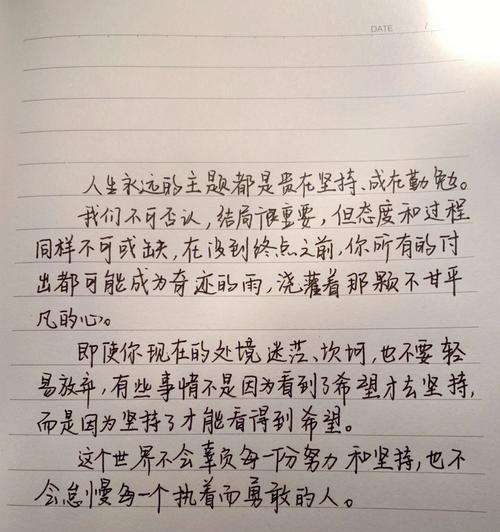 DATE
人生永远的主题都是贵在坚持、成在勤勉。
我们不可否认，结局很重要，但态度和过程
同样不可或缺，在没到终点之前，你所有的付
出都可能成为奇迹的雨，浇灌着那颗不甘平
凡的心。
即使你现在的处境迷茫、坎坷，也不要轻
易放弃，有些事情不是因为看到了希望才去坚持，
而是因为坚持了才能看得到希望。
这个世界不会辜负每一份努力和坚持，也不
会怠慢每一个执着而勇敢的人。